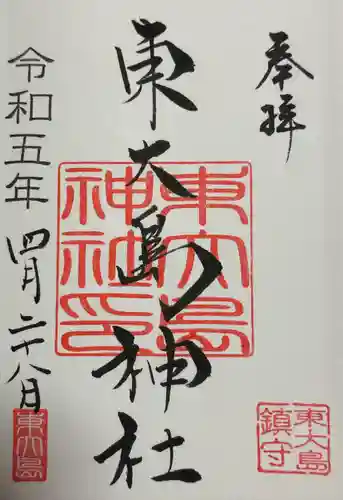 奉拝
東大島神社
令和五年 四月二十八日
東大島神社印
東大島鎮守
東大島